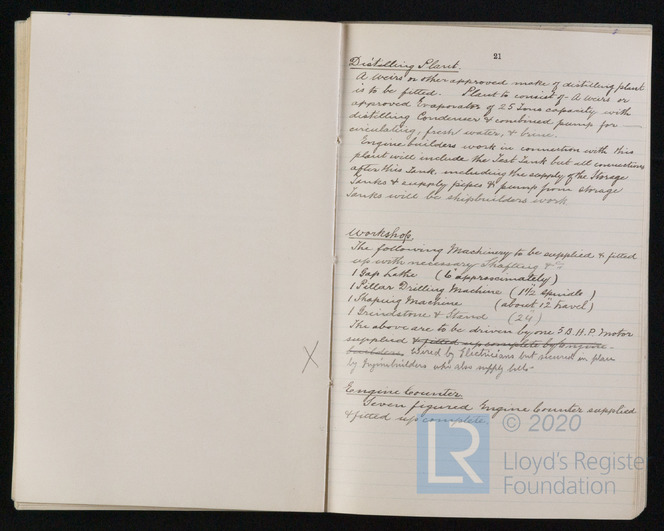 21
Distilling Plant.
A Weirs or other approved make of distilling plant
is to be fitted. Plant to consist of - A Weirs or
approved Evaporator of 25 Tons capacity with
distilling Condenser & combined pump for
circulating, fresh water, & brine.
Engine builders work in connection with this
plant will include the Test Tank but all connections
after this Tank, including the supply of the Storage
Tanks & supply pipes & pump from storage
Tanks will be shipbuilders work.
Workshop.
The following Machinery to be supplied & fitted
up with necessary Shafting &c
1 Gap Lathe (6" approximately)
1 Pillar Drilling Machine (1½ spindle)
1 Shaping Machine (about 12" travel)
1 Grindstone & Stand (24)
The above are to be driven by one 5 B.H.P. Motor
supplied & fitted up complete by Engine
builders. Wired by Electricians but secured in place
by Enginebuilders who also supply bolts
X
Engine Counter.
Seven figured Engine Counter supplied
& fitted up complete.
LR © 2020
Lloyd's Register
Foundation